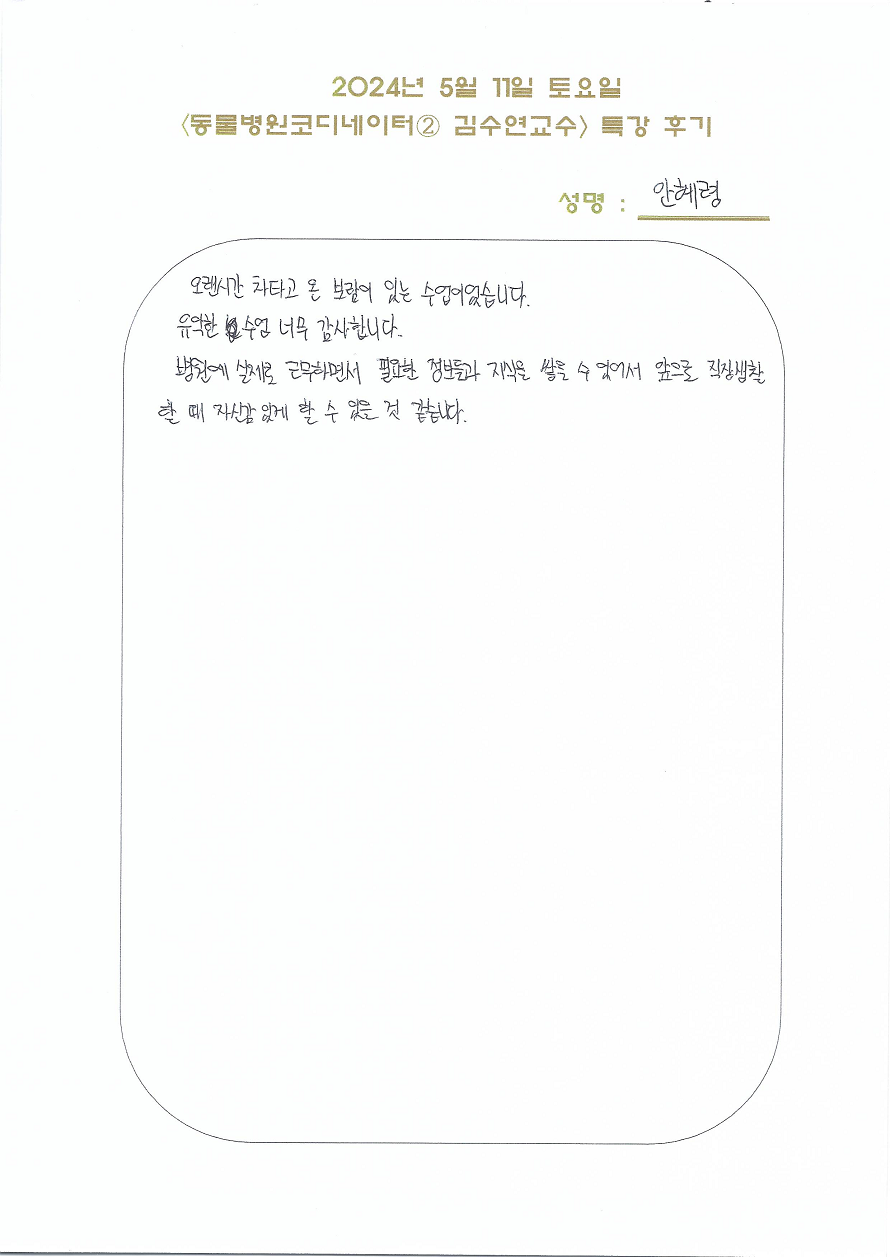 2024년 5월 11일 토요일
<동물병원코디네이터② 김수연교수> 특강 후기
성명 : 안혜령
오랜시간 차타고 온 보람이 있는 수업이었습니다.
유익한 수업 너무 감사합니다.
병원에 실제로 근무하면서 필요한 정보들과 지식을 쌓을 수 있어서 앞으로 직장생활
할 때 자신감 있게 할 수 있을 것 같습니다.